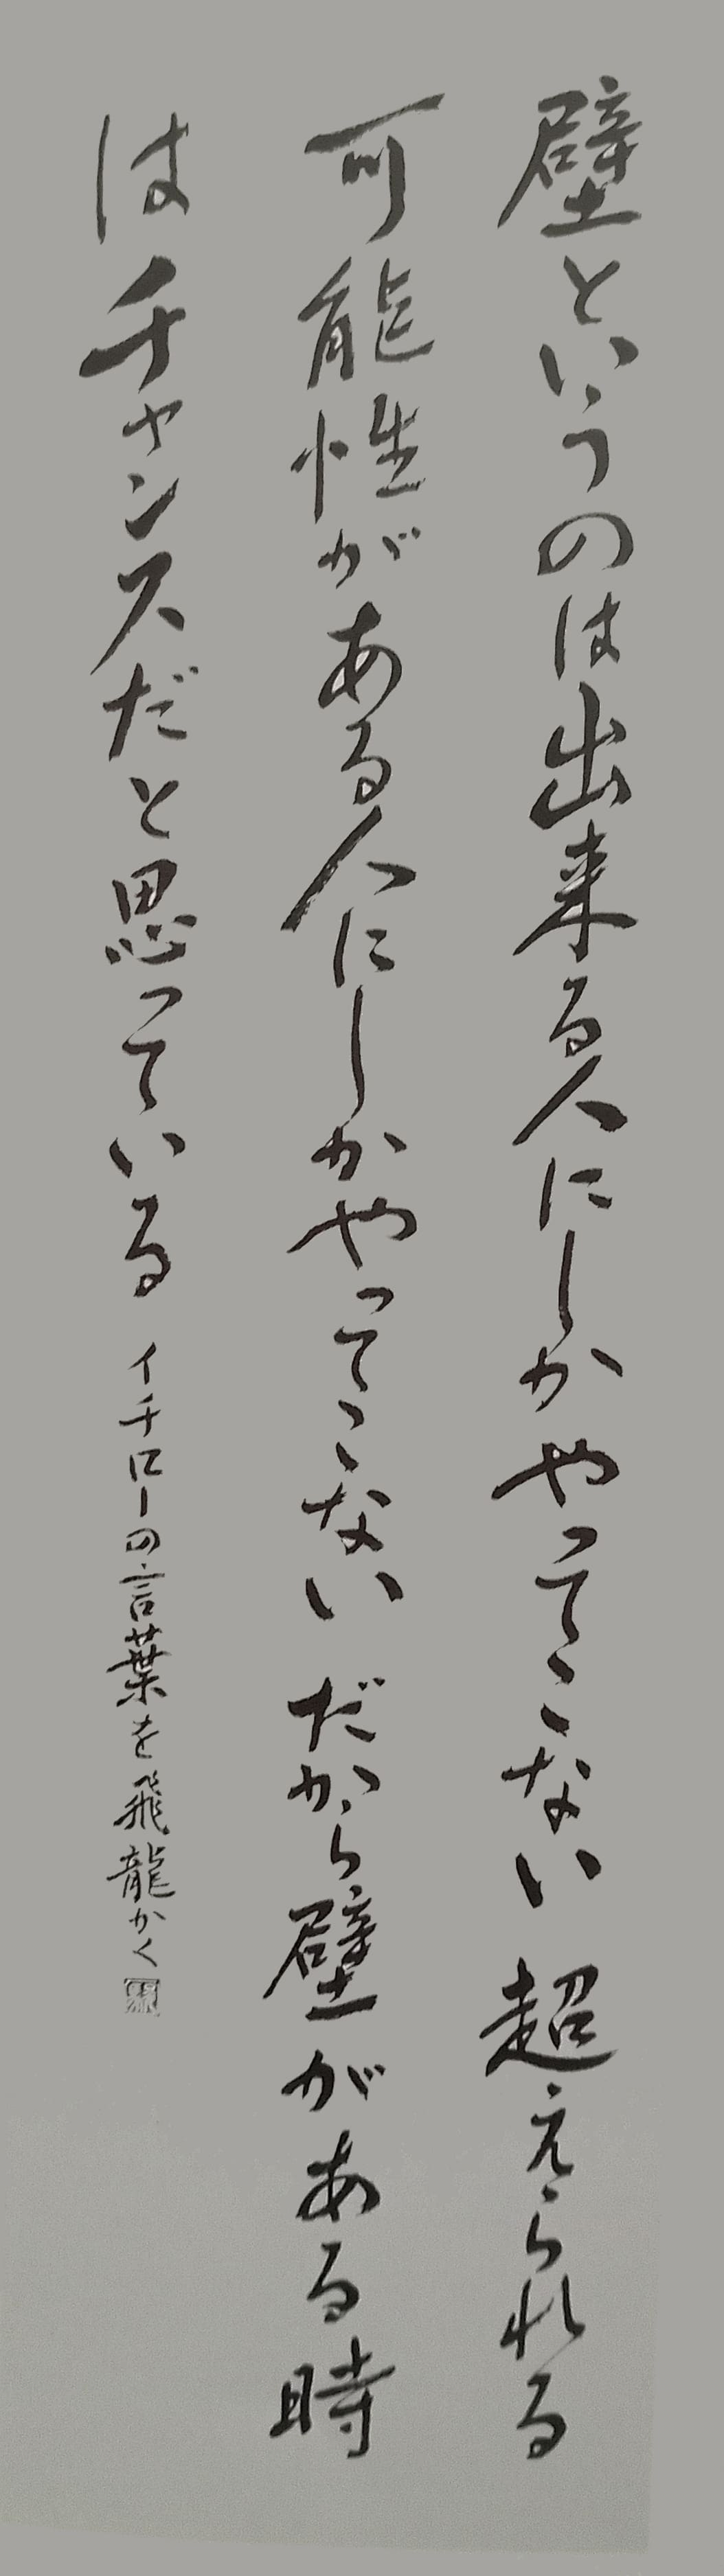 壁というのは出来る人にしかやってこない 超えられる
可能性がある人にしかやってこない だから壁がある時
はチャンスだと思っている イチローの言葉を飛龍かく